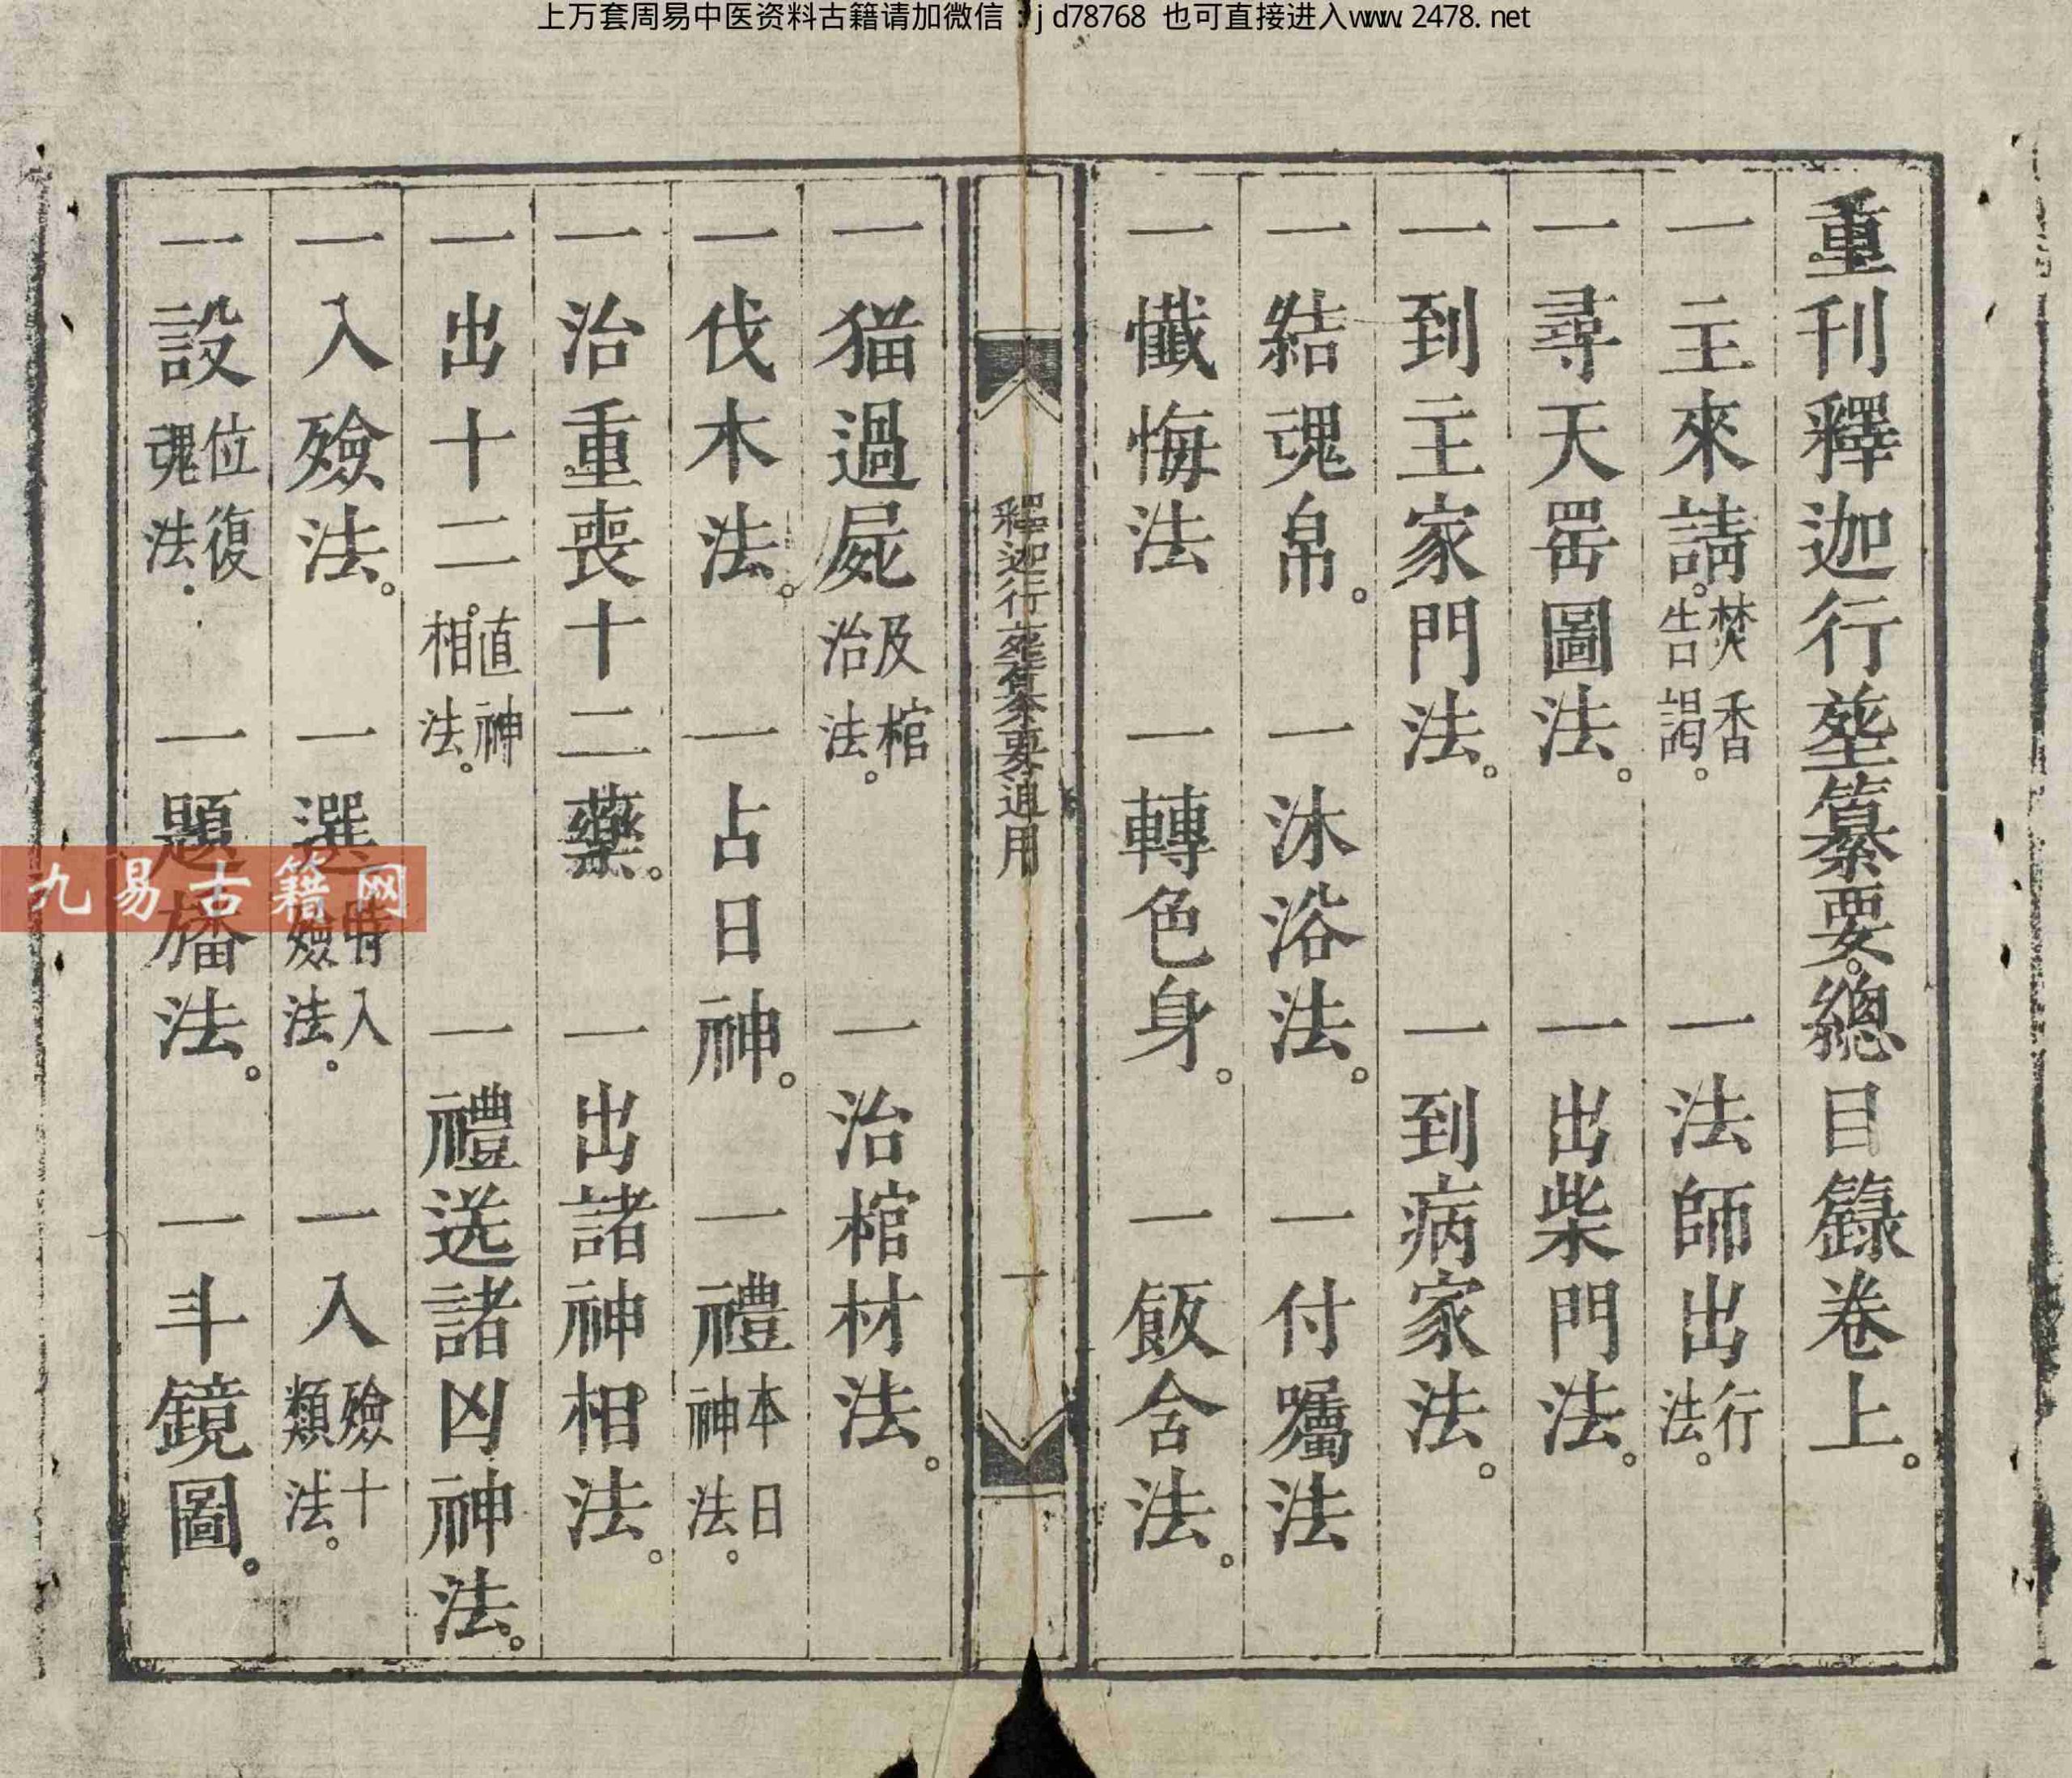 上万套周易中医资料古籍请加微信：jd78768 也可直接进入www.2478.net
重刊釋迦行塟纂要。總目錄卷上。
一主來請。焚香告謁。 一法師出行法。
一尋天罡圖法。 一出柴門法。
一到主家門法。 一到病家法。
一結魂帛。 一沐浴法。 一付囑法
一懺悔法 一轉色身。 一飯含法。
釋迦行塟纂要通用
一
一猫過屍及棺治法。 一治棺材法。
一伐木法。 一占日神。 一禮本日神法。
一治重喪十二藥。 一出諸神相法。
一出十二直神相法。 一禮送諸凶神法。
一入殮法。 一選時入殮法。 一入殮十類法。
一設位復魂法。 一題旛法。 一斗鏡圖。
九易古籍网